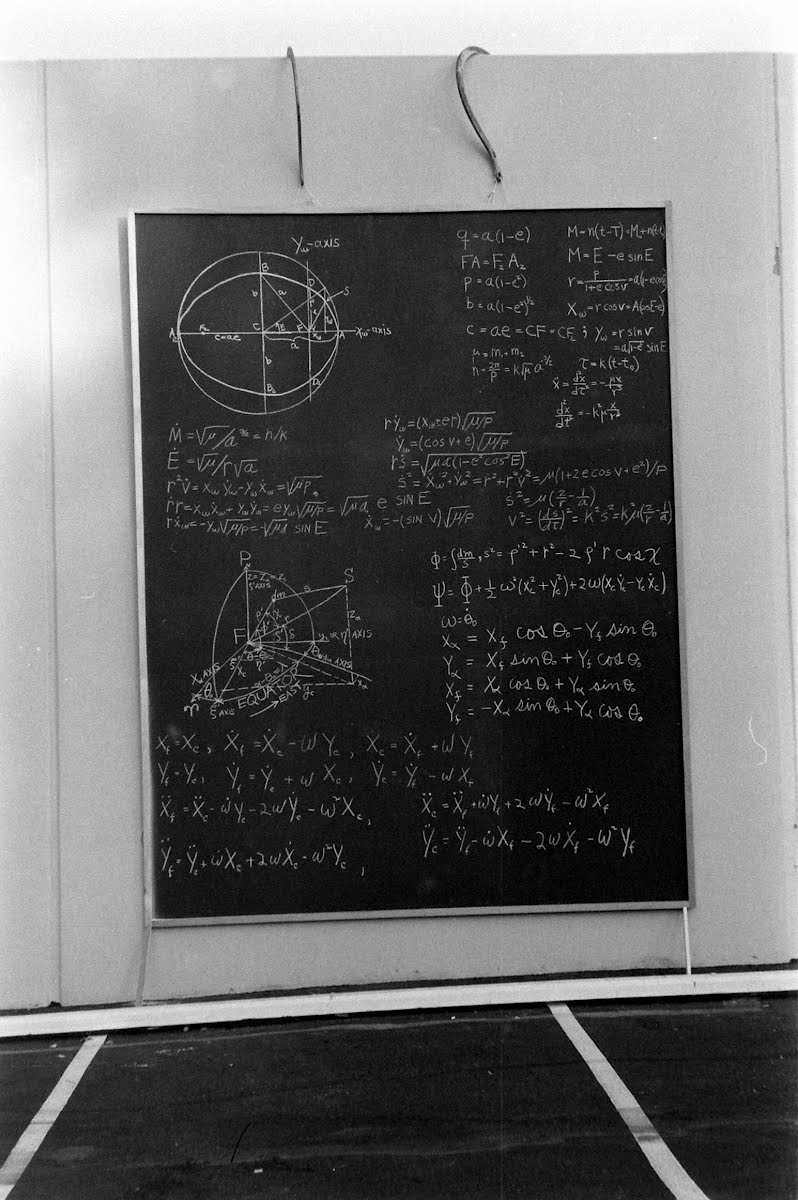 Yω-axis
B
D
S
b
a
r
A₂
F₂
c=ae
C
E
F
A
Xω-axis
a
b
B₂
D₂
q = a(1-e)
FA = F₂A₂
p = a(1-e²)
b = a(1-e²)^½
c = ae = CF = CF₂ ;
μ = m₁ + m₂
n = 2π/P = k√μ a^-3/2
M = n(t-T) = M₀ + n(t-t₀
M = E - e sin E
r = p/(1+e cos v) = a(1-e cos
Xω = r cos v = A(cos E-e)
Yω = r sin v
= a√1-e² sin E
τ = k(t-t₀)
ẍ = d²x/dτ² = -μx/r³
d²x/dt² = -k²μ x/r³
Ṁ = √μ/a^3/2 = n/k
Ė = √μ/r√a
r²v̇ = xω ẏω - yω ẋω = √μp
rṙ = xω ẋω + yω ẏω = e yω √μ/p = √μa e SIN E
rẋω = -yω √μ/p = -√μa SIN E
rẏω = (xω + er)√μ/p
ẏω = (cos v + e)√μ/p
rṡ = √μa(1-e² cos² E)
ṡ² = ẋω² + ẏω² = ṙ² + r²v̇² = μ(1+2e cos v + e²)/p
ẋω = -(SIN v)√μ/p
ṡ² = μ(2/r - 1/a)
V² = (ds/dt)² = k²ṡ² = k²μ(2/r - 1/a)
P
S
dm
F
EQUATOR
EAST
Φ = ∫dm/s, s² = ρ'² + r² - 2ρ' r cos χ
Ψ = Φ + ½ω²(X_c² + Y_c²) + 2ω(X_c Ẏ_c - Y_c Ẋ_c)
ω = θ̇₀
Xα = X_f cos θ₀ - Y_f sin θ₀
Yα = X_f sin θ₀ + Y_f cos θ₀
X_f = Xα cos θ₀ + Yα sin θ₀
Y_f = -Xα sin θ₀ + Yα cos θ₀
X_f = X_c, Ẋ_f = Ẋ_c - ωY_c, Ẋ_c = Ẋ_f + ωY_f
Y_f = Y_c, Ẏ_f = Ẏ_c + ωX_c, Ẏ_c = Ẏ_f - ωX_f
Ẍ_f = Ẍ_c - ω̇Y_c - 2ωẎ_c - ω²X_c,
Ẍ_c = Ẍ_f + ω̇Y_f + 2ωẎ_f - ω²X_f
Ÿ_f = Ÿ_c + ω̇X_c + 2ωẊ_c - ω²Y_c,
Ÿ_c = Ÿ_f - ω̇X_f - 2ωẊ_f - ω²Y_f